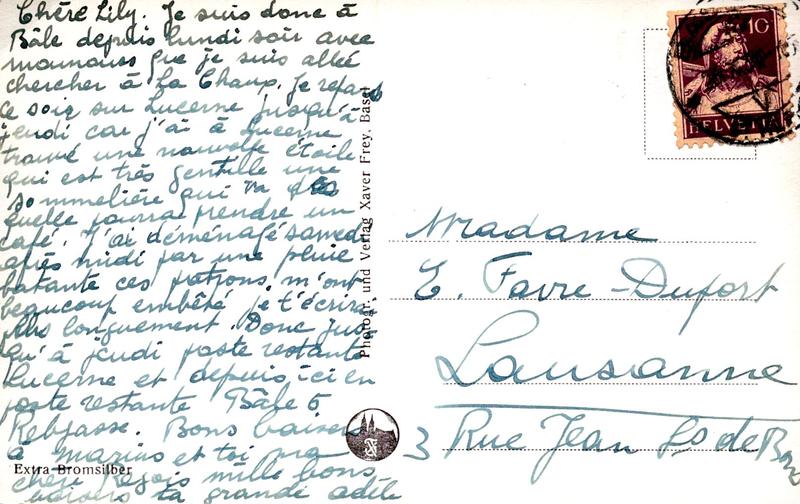 Chère Lily. Je suis donc à
Bâle depuis lundi soir avec
que je suis allée
chercher à La Chaux. Je repars
ce soir sur Lucerne jusqu'à
jeudi car j'ai à Lucerne
trouvé une nouvelle étoile
qui est très gentille une
sommelière qui va
quelle pourra prendre un
café. J'ai déménagé samedi
après midi par une pluie
batante ces patrons m'ont
beaucoup embêté je t'écrirai
plus longuement. Donc jus
qu'à jeudi poste restante
Lucerne et depuis ici en
poste restante Bâle 5
Rebgasse. Bons baisers
à marius et toi ma
chère Reçois mille bons
baisers ta grande adèle
Extra Bromsilber
Photogr. und Verlag Xaver Frey, Basel
10
HELVETIA
Madame
E. Favre-Dufort
Lausanne
3 Rue Jean Ls de